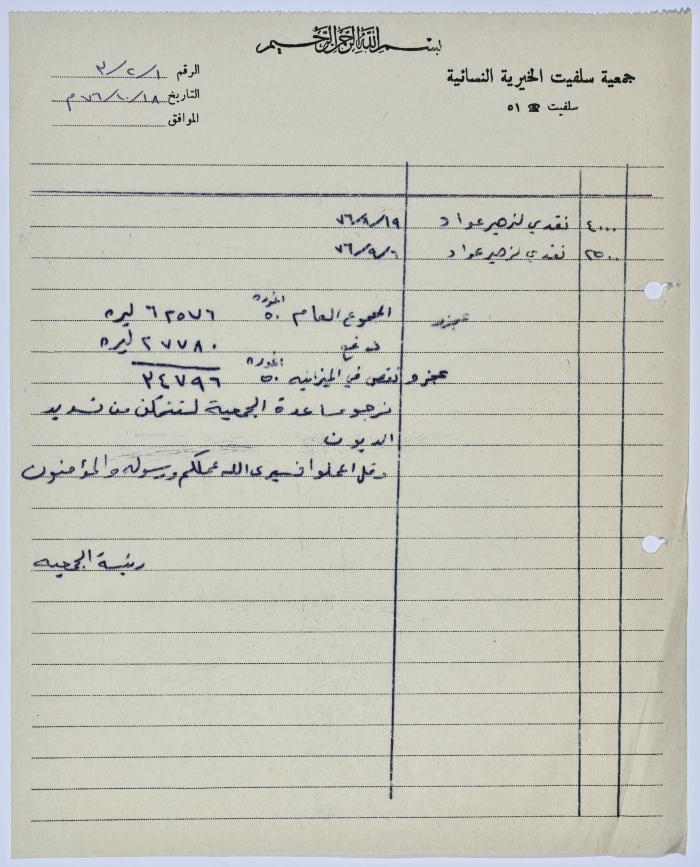 بسم الله الرحمن الرحيم
جمعية سلفيت الخيرية النسائية
سلفيت ☎ ٥١
الرقم ٣/٢/١
التاريخ ٧٦/١٠/١٨م
الموافق
٤٠٠٠ نقدي لزهير عواد ٧٦/٨/١٩
٢٥٠٠ نقدي لزهير عواد ٧٦/٩/٦
المجموع العام ٥٠ اغوره ٦٢٥٧٦ ليره
دفع ٢٧٧٨٠ ليره
عجز ونقص في الميزانيه ٥٠ اغوره ٣٤٧٩٦
نرجو مساعدة الجمعية لتتمكن من تسديد
الديون
وقل اعملوا فسيرى الله عملكم ورسوله والمؤمنون
رئيسة الجمعيه